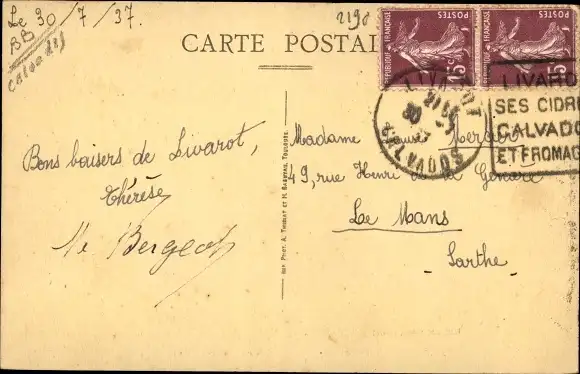 Le 30/7/37.
BB
Calvados
2198
CARTE POSTALE
POSTES
REPUBLIQUE FRANÇAISE
15c
POSTES
15c
LIVAROT
CALVADOS
LIVARO
SES CIDRE
CALVADO
ET FROMAG
Bons baisers de Livarot,
Thérèse
M Bergeot
IMP. PHOT. A. THIRIAT ET H. BASUYAU, TOULOUSE.
Madame
49, rue Henri de la Génere
Le Mans
Sarthe